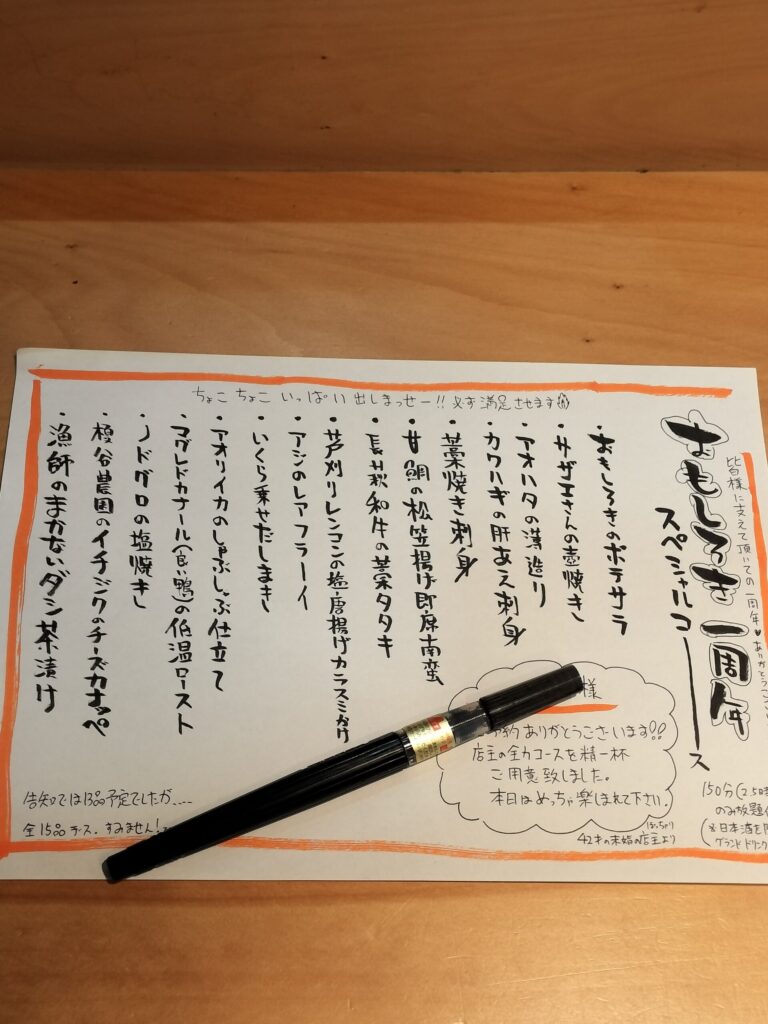 おもしろき 一周年
皆様に支えて頂いての一周年♥ありがとうござ
スペシャルコース
ちょこちょこ いっぱい 出しまっせー!! 必ず満足させます
・おもしろきのポテサラ
・サザエさんの壺焼き
・アオハタの薄造り
・カワハギの肝あえ刺身
・藁焼き刺身
・甘鯛の松笠揚げ即席南蛮
・長萩和牛の藁タタキ
・芦刈りレンコンの塩唐揚げカラスミがけ
・アジのレアフラーイ
・いくら乗せだしまき
・アオリイカのしゃぶしゃぶ仕立て
・マグレドカナール(食い鴨)の低温ロースト
・ノドグロの塩焼き
・榎谷農園のイチジクのチーズカナッペ
・漁師のまかないダシ茶漬け
様
予約ありがとうございます!!
店主の全力コースを精一杯
ご用意致しました。
本日はめっちゃ楽しまれて下さい。
ぽっちゃり
42才の未婚の店主より
150分(2.5時
のみ放題
(※日本酒を
グランドドリンク
告知では13品予定でしたが....
全15品デース。すみません!